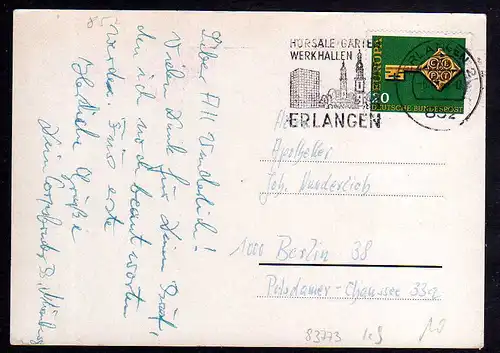 85
Lieber AH Wunderlich!
Vielen Dank für Deinen Brief,
den ich noch beantworten
werde. Fürs erste
Herzliche Grüße
Dein Corpsbruder D.
HÖRSÄLE·GÄRTEN
WERKHALLEN
ERLANGEN
ERLANGEN 2
852
EUROPA
CEPT
20
DEUTSCHE BUNDESPOST
Herrn
Apotheker
Joh. Wunderlich
1000 Berlin 38
Potsdamer-Chaussee 33a
83773